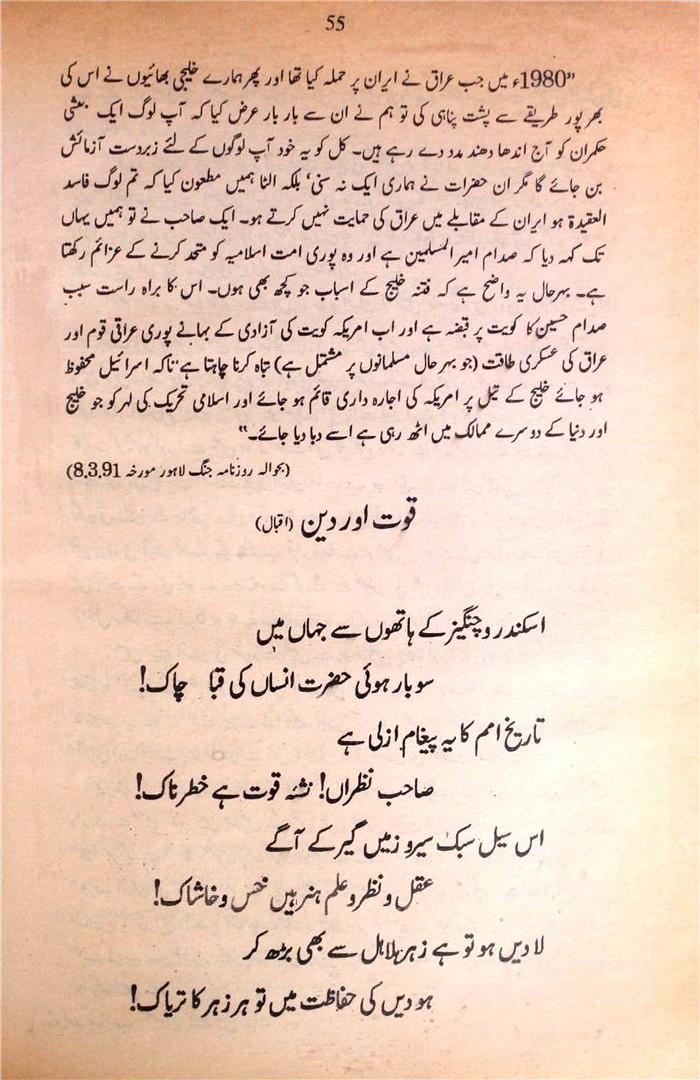 55
”1980ء میں جب عراق نے ایران پر حملہ کیا تھا اور پھر ہمارے خلیجی بھائیوں نے اس کی
بھرپور طریقے سے پشت پناہی کی تو ہم نے ان سے بار بار عرض کیا کہ آپ لوگ ایک بعثی
حکمران کو آج اندھا دھند مدد دے رہے ہیں۔ کل کو یہ خود آپ لوگوں کے لئے زبردست آزمائش
بن جائے گا مگر ان حضرات نے ہماری ایک نہ سنی‘ بلکہ الٹا ہمیں مطعون کیا کہ تم لوگ فاسد
العقیدۃ ہو ایران کے مقابلے میں عراق کی حمایت نہیں کرتے ہو۔ ایک صاحب نے تو ہمیں یہاں
تک کہہ دیا کہ صدام امیر المسلمین ہے اور وہ پوری امت اسلامیہ کو متحد کرنے کے عزائم رکھتا
ہے۔ بہرحال یہ واضح ہے کہ فتنہ خلیج کے اسباب جو کچھ بھی ہوں۔ اس کا براہ راست سبب
صدام حسین کا کویت پر قبضہ ہے اور اب امریکہ کویت کی آزادی کے بہانے پوری عراقی قوم اور
عراق کی عسکری طاقت (جو بہرحال مسلمانوں پر مشتمل ہے) تباہ کرنا چاہتا ہے تاکہ اسرائیل محفوظ
ہو جائے خلیج کے تیل پر امریکہ کی اجارہ داری قائم ہو جائے اور اسلامی تحریک کی لہر کو جو خلیج
اور دنیا کے دوسرے ممالک میں اٹھ رہی ہے اسے دبا دیا جائے۔“
(بحوالہ روزنامہ جنگ لاہور مورخہ 8.3.91)
قوت اور دین (اقبال)
اسکندر و چنگیز کے ہاتھوں سے جہاں میں
سو بار ہوئی حضرت انساں کی قبا چاک!
تاریخ امم کا یہ پیغام ازلی ہے
صاحب نظراں! نشۂ قوت ہے خطرناک!
اس سیل سبک سیر و زمیں گیر کے آگے
عقل و نظر و علم ہنر ہیں خس و خاشاک!
لا دیں ہو تو ہے زہر ہلاہل سے بھی بڑھ کر
ہو دیں کی حفاظت میں تو ہر زہر کا تریاک!